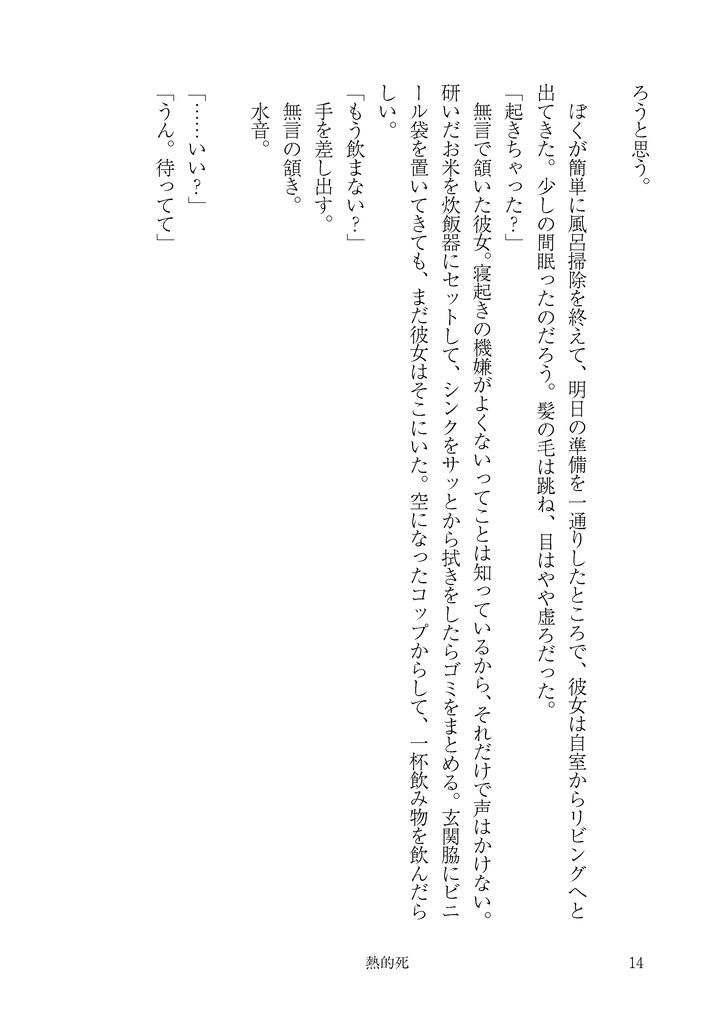 ろうと思う。
ぼくが簡単に風呂掃除を終えて、明日の準備を一通りしたところで、彼女は自室からリビングへと
出てきた。少しの間眠ったのだろう。髪の毛は跳ね、目はやや虚ろだった。
「起きちゃった？」
無言で頷いた彼女。寝起きの機嫌がよくないってことは知っているから、それだけで声はかけない。
研いだお米を炊飯器にセットして、シンクをサッとから拭きをしたらゴミをまとめる。玄関脇にビニ
ール袋を置いてきても、まだ彼女はそこにいた。空になったコップからして、一杯飲み物を飲んだら
しい。
「もう飲まない？」
手を差し出す。
無言の頷き。
水音。
「……いい？」
「うん。待ってて」
熱的死
14